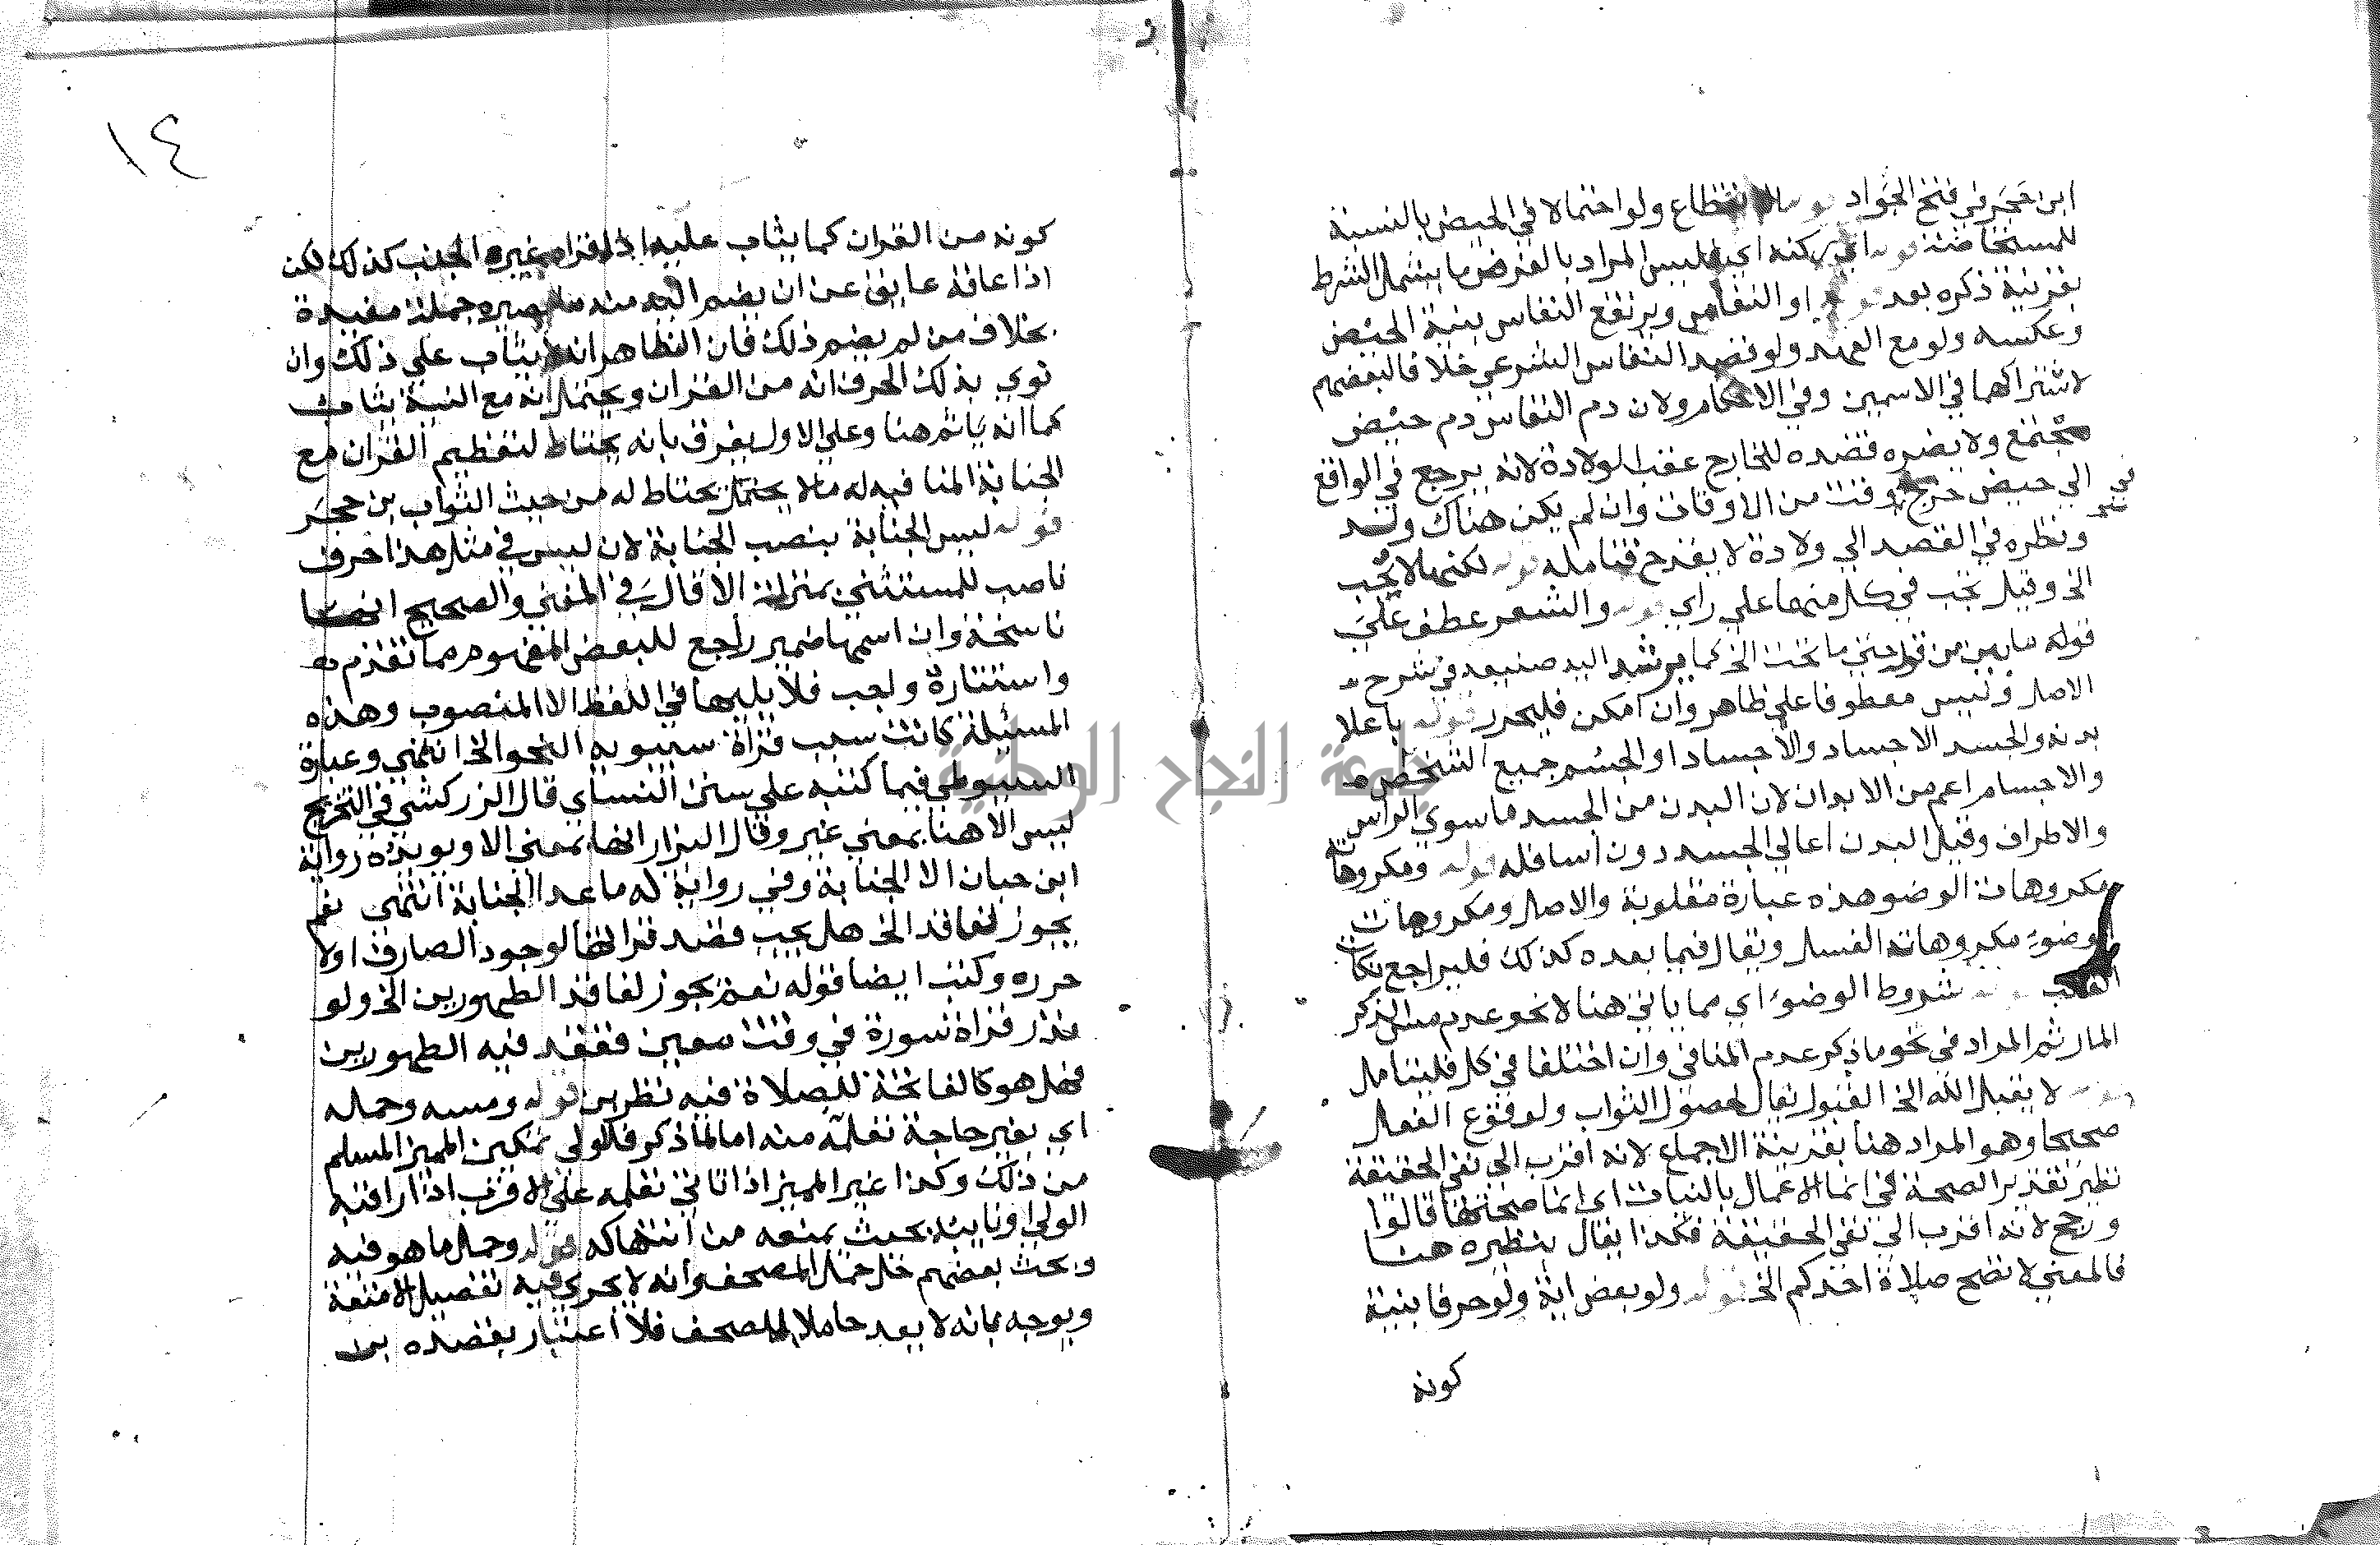 ابن حجر في فتح الجواد قوله لانقطاع ولو احتمالا في الحيض بالنسبة
للمستحاضة قوله اي ركنه اي فليس المراد بالفرض ما يشمل الشرط
بقرينة ذكره بعد قوله او النفاس ويرتفع النفاس بنية الحيض
وعكسه ولو مع العمد ولو قصد النفاس الشرعي خلافا لبعضهم
لاشتراكهما في الاسمين وفي الاحكام ولان دم النفاس دم حيض
مجتمع ولا يضره قصده للخارج عقب الولادة لانه يرجع في الواقع
الي حيض خرج وقت من الاوقات وان لم يكن هناك ولد
ونظره في القصد الي ولادة لا يقدح فتامله قوله لكنها لا يجب
الخ وقيل تجب في كل منهما علي راي قوله والشعر عطف علي
قوله ما بين من قوله حتي ما تحت الخ كما يرشد اليه صنيعه في شرح
الاصل وليس معطوفا علي ظاهر وان امكن فليحرر قوله باعلا
بدنه والجسد الاجساد والاجساد او الجسم جميع الشخص
والاجسام اعم من الابدان لان البدن من الجسد ماسوي الراس
والاطراف وقيل البدن اعالي الجسد دون اسافله قوله ومكروهاته
مكروهات الوضو هذه عبارة مقلوبة والاصل ومكروهات
الوضوء مكروهاته الغسل ويقال فيما بعده كذلك فليراجع نكات
القلب قوله شروط الوضوء اي مما ياتي هنا لا نحو عدم مس الذكر
المار ثم المراد في نحو ما ذكر عدم المنافي وان اختلفا في كل فليتامل
قوله لا يقبل الله الخ القبول يقال لحصول الثواب ولوقوع الفعل
صحيحا وهو المراد هنا بقرينة الاجماع لانه اقرب الي نفي الحقيقة
نظير تقدير الصحة في انما الاعمال بالنيات اي انما صحتها قالوا
ورجح لانه اقرب الي نفي الحقيقة فكذا يقال بنظيره هنا
فالمعني لا تصح صلاة احدكم الخ قوله ولو بعض اية ولو حرفا بنية
كونه
١٤
كونه من القران كما يثاب عليه اذا قراه غيره الجنب كذلك لكن
اذا عاقه عايق عن ان يضم اليه منه ما يصيره جملة مفيدة
بخلاف من لم يضم ذلك فان الظاهر انه لا يثاب علي ذلك وان
نوي بذلك الحرف انه من القران ويحتمل انه مع النية يثاب
كما انه ياثم هنا وعلي الاول يفرق بانه يحتاط لتعظيم القران مع
الجنابة المنافيه له مالا يحتمل يحتاط له من حيث الثواب بن حجر
قوله ليس الجنابة بنصب الجنابة لان ليس في مثل هذا حرف
ناصب للمستثني بمنزلة الا قال في المغني والصحيح انها
ناسخة وان اسمها ضمير راجع للبعض المفهوم مما تقدم
واستتاره واجب فلا يليها في اللفظ الا المنصوب وهذه
المسئلة كانت سبب قراة سيبويه النحو الخ انتهي وعبارة
السيوطي فيما كتبه علي سنن النساي قال الزركشي في التخريج
ليس الا هنا بمعني غير وقال البزار انها بمعني الا ويويده رواية
ابن حبان الا الجنابة وفي رواية له ما عدا الجنابة انتهي نعم
يجوز لفاقد الخ هل يجب قصد قراتها لوجود الصارف اولا
حرره وكتب ايضا قوله نعم يجوز لفاقد الطهورين الخ ولو
نذر قراة سورة في وقت معين ففقد فيه الطهورين
فهل هو كالفاتحة للصلاة فيه نظر بن قوله ومسه وحمله
اي بغير حاجة تعلمه منه اما لما ذكر فللولي تمكين المميز المسلم
من ذلك وكذا غير المميز اذا تاتي تعلمه علي الاقرب اذا راقبه
الولي او نايبه بحيث يمنعه من انتهاكه قوله وحمل ما هو فيه
وبحث بعضهم حل حمل المصحف وانه لا يجري فيه تفصيل الامتعة
ويوجه بانه لا يعد حاملا للمصحف فلا اعتبار بقصده بن